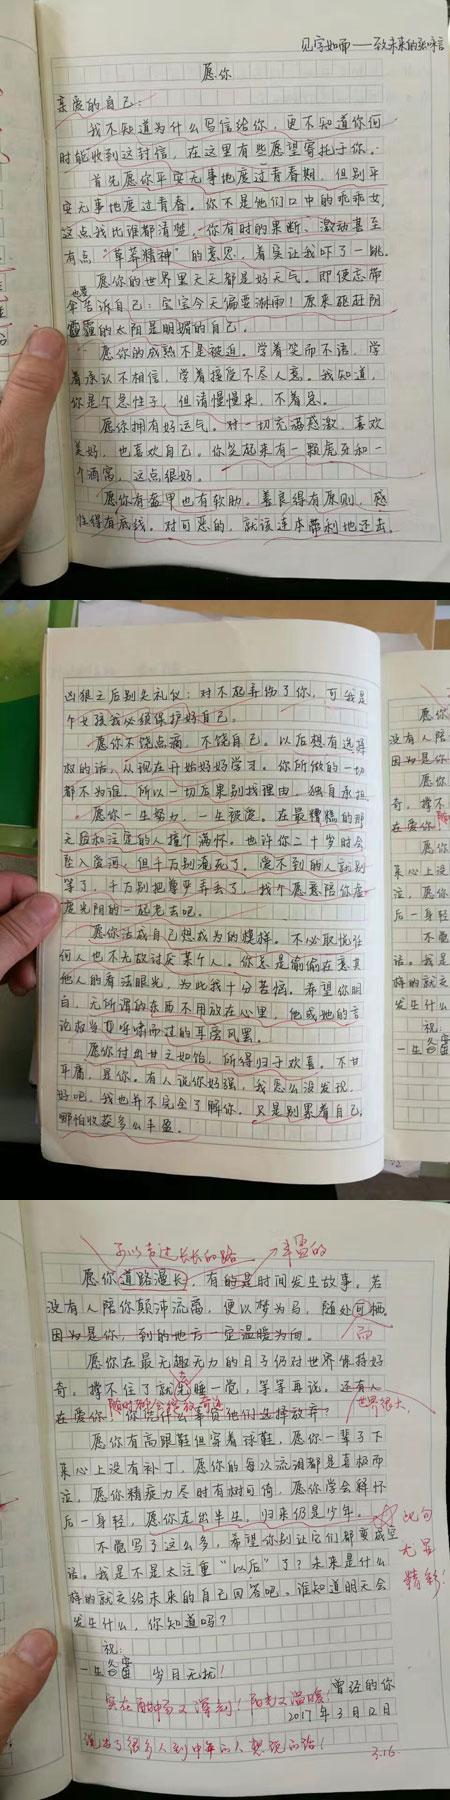 见字如面——致未来的
愿你
亲爱的自己：
我不知道为什么写信给你，更不知道你何
时能收到这封信，在这里有些愿望寄托于你。
首先愿你平安无事地度过青春期，但别平
安无事地度过青春。你不是他们口中的乖乖女，
这点我比谁都清楚，你有时的果断、激动甚至
有点“草莽精神”的意思，着实让我吓了一跳。
愿你的世界里天天都是好天气。即使忘带
伞也要告诉自己：宝宝今天偏要淋雨！原来驱赶阴
霾的太阳是明媚的自己。
愿你的成熟不是被迫。学着笑而不语，学
着承认不相信，学着接受不尽人意。我知道，
你是个急性子，但请慢慢来，不着急。
愿你拥有好运气。对一切充满感激，喜欢
美好，也喜欢自己。你笑起来有一颗虎牙和一
个酒窝，这点很好。
愿你有盔甲也有软肋。善良得有原则，感
性得有底线。对可恶的，就该连本带利地还击。
凶狠之后别失礼仪：对不起弄伤了你，可我是
个女孩我必须保护好自己。
愿你不饶点滴，不饶自己。以后想有选择
权的话，从现在开始好好学习。你所做的一切
都不为谁，所以一切后果别找理由，独自承担。
愿你一生努力，一生被爱。在最糟糕的那
天后和注定的人撞个满怀。也许你二十岁时会
坠入爱河，但千万别淹死了，爱不到的人就别
等了，千万别把尊严弄丢了，找个愿意陪你虚
度光阴的一起老去吧。
愿你活成自己想成为的模样。不必取悦任
何人也不无故讨厌某个人。你总是偷偷在意其
他人的看法眼光，为此我十分苦恼。希望你明
白，无所谓的东西不用放在心里，他或她的言
论权当耳旁风罢。
愿你付出甘之如饴，所得归于欢喜。不甘
平庸，是你。有人说你好强，我怎么没发现，
好吧，我也并不完全了解你。只是别累着自己，
哪怕收获多么丰盈。
可以走过长长的路
丰盈的
愿你道路漫长，有的是时间发生故事。若
没有人陪你颠沛流离，便以梦为马，随处可栖。
因为是你，到的地方一定温暖为向。
而
愿你在最无趣无力的日子仍对世界保持好
奇。撑不住了就先睡一觉，等等再说。还有人
去
随时都会绽放奇迹
世界很大，
在爱你，你凭什么辜负他们选择放弃？
愿你有高跟鞋但穿着球鞋，愿你一辈子下
来心上没有补丁，愿你的每次流泪都是喜极而
泣，愿你精疲力尽时有树可倚，愿你学会释怀
后一身轻，愿你走出半生，归来仍是少年。
此句
尤显
精彩！
不觉写了这么多，希望你别让它们都变成空
话。我是不是太注重“以后”了？未来是什么
样的就交给未来的自己回答吧。谁知道明天会
发生什么，你知道吗？
祝：
一生 岁月无扰！
曾经的你
2017年3月12日
实在 深刻！阳光又温暖！
说出了很多人到中年的人想说的话！
3.16